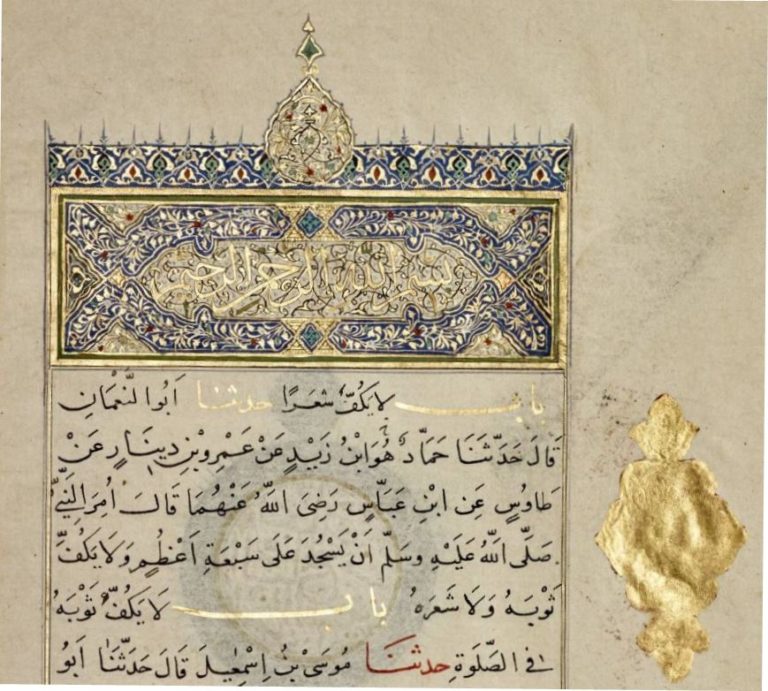 بسم الله الرحمن الرحيم
باب لا يَكُفُّ شعَرًا حدثنا اَبُوا النُّعْمَانِ
قَالَ حَدَّثَنَا حَمَّادٌ هُوَ ابْنُ زَيْدٍ عَنْ عَمْرِو بْنِ دِينَارٍ عَنْ
طَاوُسٍ عَنِ ابْنِ عَبَّاسٍ رَضِيَ اللهُ عَنْهُمَا قَالَ اُمِرَ النَّبِيُّ
صَلَّى اللهُ عَلَيْهِ وَسَلَّمَ اَنْ يَسْجُدَ عَلَى سَبْعَةِ اَعْظُمٍ وَلَا يَكُفَّ
ثَوْبَهُ وَلَا شَعَرَهُ باب لَا يَكُفُّ ثَوْبَهُ
فى الصَّلٰوةِ حدثنا مُوسَى بْنُ اِسْمٰعِيلَ قَالَ حَدَّثَنَا اَبُو